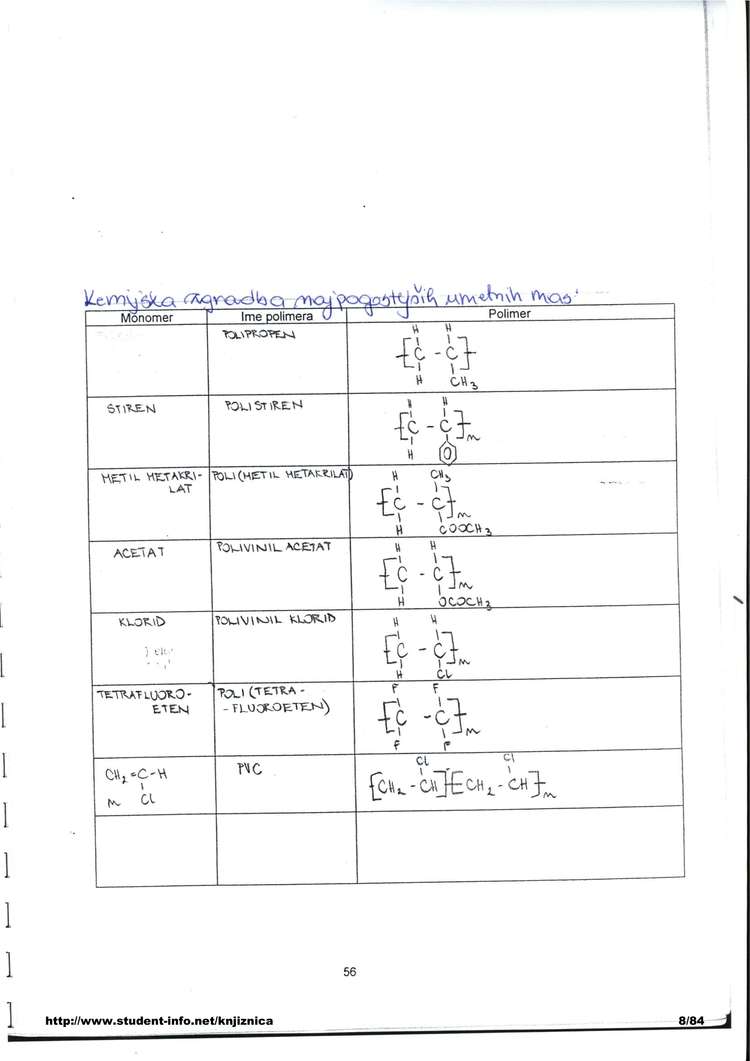 Kemijska zgradba najpogostejših umetnih mas:
Monomer Ime polimera Polimer
POLIPROPEN
H H
[C - C]
H CH3
STIREN POLISTIREN
H H
[C - C]n
H
METIL METAKRI- POLI(METIL METAKRILAT)
LAT
H CH3
[C - C]n
H COOCH3
ACETAT POLIVINIL ACETAT
H H
[C - C]n
H OCOCH3
KLORID POLIVINIL KLORID
H H
[C - C]n
H Cl
TETRAFLUORO- POLI(TETRA-
ETEN -FLUOROETEN)
F F
[C - C]n
F F
CH2=C-H PVC
n Cl
Cl Cl
[CH2-CH][CH2-CH]n
56
http://www.student-info.net/knjiznica 8/84